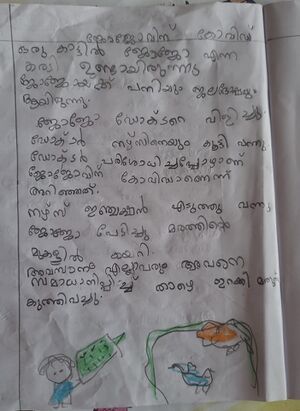 ജോജോവിന് കോവിഡ്
ഒരു കാട്ടിൽ ജോജോ എന്ന
കരടി ഉണ്ടായിരുന്നു
ജോജോയ്ക്ക് പനിയും ജലദോഷവും
ആയിരുന്നു.
ജോജോ ഡോക്ടറെ വിളിച്ചു.
ഡോക്ടർ നഴ്സിനെയും കൂട്ടി വന്നു
ഡോക്ടർ പരിശോധിച്ചപ്പോഴാണ്
ജോജോവിന് കോവിഡാണെന്ന്
അറിഞ്ഞത്.
നഴ്സ് ഇഞ്ചക്ഷൻ എടുത്തു വന്നു
ജോജോ പേടിച്ചു മരത്തിന്റെ
മുകളിൽ കയറി
അവസാനം എല്ലാവരും അവനെ
സമാധാനിപ്പിച്ച് താഴെ ഇറക്കി മരുന്ന്
കുത്തിവച്ചു.